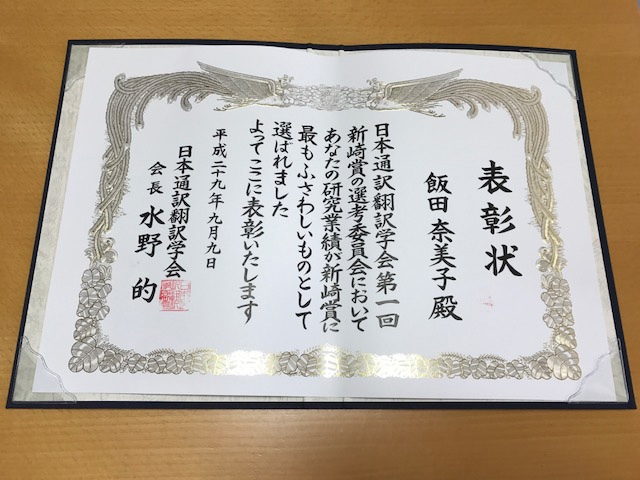 表彰状
飯田奈美子殿
日本通訳翻訳学会第一回
新崎賞の選考委員会において
あなたの研究業績が新崎賞に
最もふさわしいものとして
選ばれました
よってここに表彰いたします
平成二十九年九月九日
日本通訳翻訳学会
会長 水野的